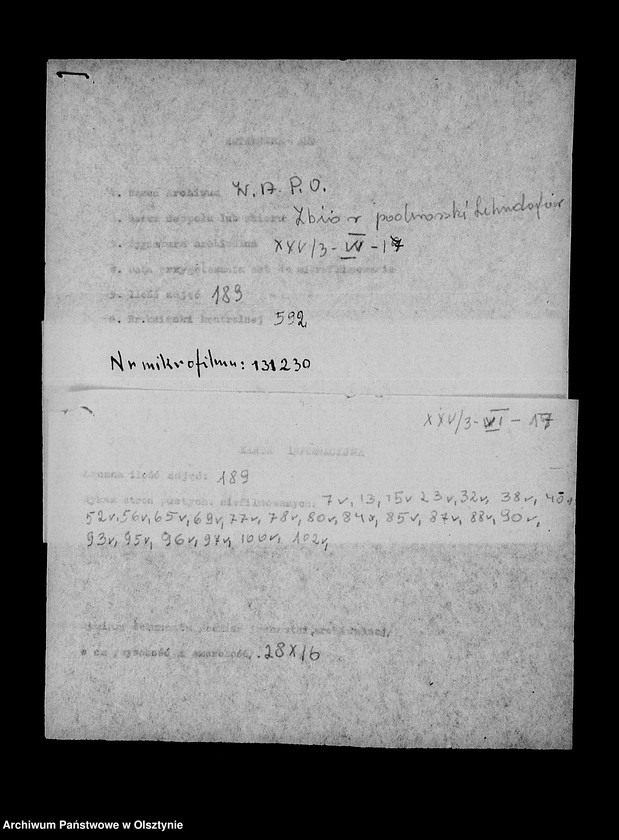 1. Nazwa Archiwum W. A. P. O.
Nazwa zespołu lub zbioru Zbiór podworski Lehndorfów
3. Sygnatura archiwalna XXV/3-VI-17
przygotowania do mikrofilmowania
5. Ilość zdjęć 189
6. Nr. książki kontrolnej 592
Nr mikrofilmu: 131230
XXV/3-VI-17
KARTA INFORMACYJNA
Łączna ilość zdjęć: 189
Wykaz stron pustych, niefilmowanych. 7v, 13, 15v 23v, 32v, 38v, 40v
52v, 56v, 65v, 69v, 77v, 78v, 80v, 84v, 85v, 87v, 88v, 90v,
93v, 95v, 96v, 97v, 100v, 102v,
28x16
Archiwum Państwowe w Olsztynie